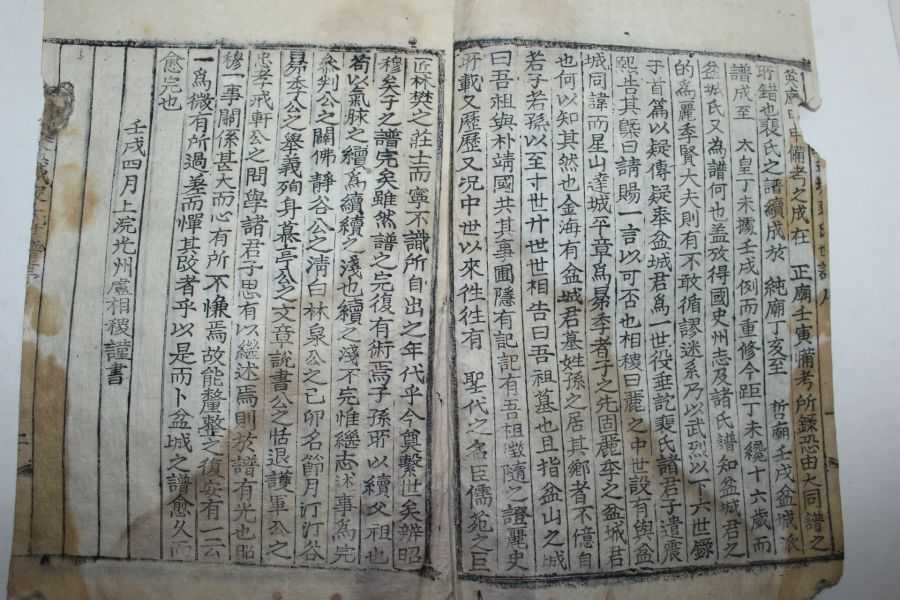 英廟 申備考之成在 正廟壬寅 備考所錄恐由大同譜之
所錯也裴氏之譜續成於 純廟丁亥至 哲廟壬戌盆城派
譜成至 太皇丁未據壬戌例而重修今距丁未纔十六歲而
盆城氏又為譜何也盖放得國史州志及諸氏譜知盆城君之
的為麗季賢大夫則有不敢循謬迷系乃以武烈以下六世錄
于首篇以疑傳疑奉盆城君為一世役垂訖裴氏諸君子遣震
熙告其槩曰請賜一言以可否也相稷曰麗之中世設有與盆
城同諱而星山達城平章為昴季者子之先固麗季之盆城君
也何以知其然也金海有盆城君墓姓孫之居其鄉者不億自
若子若孫以至十世廿世世相告曰吾祖墓也且指盆山之城
曰吾祖與朴靖國共其事圃隱有記記有吾祖徵隨之證麗史
所載又歷歷又况中世以來徃徃有 聖代之名臣儒苑之巨
匠林樊之莊士而寧不識所自出之年代乎今奠繫世矣辨昭
穆矣子之譜完矣雖然譜之完復有術焉子孫所以續父祖也
苟以氣脉之續為續續之淺也續之淺不完惟繼志述事為完
公之闢佛靜谷公之淸白林泉公之己卯名節月汀汀谷
昴季公之擧義殉身慕亭公之文章說書公之恬退護軍公之
忠孝戒軒公之問學諸君子思有以繼述焉則於譜有光也昭
穆一事關係甚大而心有所不慊焉故能釐整之復安有一云
一為微有所過差而憚其改者乎以是而卜盆城之譜愈久而
愈完也
壬戌四月上浣光州盧相稷謹書